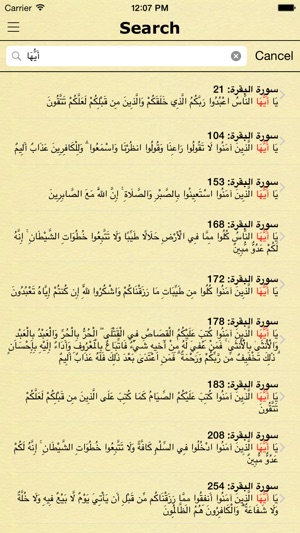 Carrier 12:07 PM
Search
أَيُّهَا
Cancel
سورة البقرة: 21
يَا أَيُّهَا النَّاسُ اعْبُدُوا رَبَّكُمُ الَّذِي خَلَقَكُمْ وَالَّذِينَ مِن قَبْلِكُمْ لَعَلَّكُمْ تَتَّقُونَ
سورة البقرة: 104
يَا أَيُّهَا الَّذِينَ آمَنُوا لَا تَقُولُوا رَاعِنَا وَقُولُوا انظُرْنَا وَاسْمَعُوا ۗ وَلِلْكَافِرِينَ عَذَابٌ أَلِيمٌ
سورة البقرة: 153
يَا أَيُّهَا الَّذِينَ آمَنُوا اسْتَعِينُوا بِالصَّبْرِ وَالصَّلَاةِ ۚ إِنَّ اللَّهَ مَعَ الصَّابِرِينَ
سورة البقرة: 168
يَا أَيُّهَا النَّاسُ كُلُوا مِمَّا فِي الْأَرْضِ حَلَالًا طَيِّبًا وَلَا تَتَّبِعُوا خُطُوَاتِ الشَّيْطَانِ ۚ إِنَّهُ
لَكُمْ عَدُوٌّ مُّبِينٌ
سورة البقرة: 172
يَا أَيُّهَا الَّذِينَ آمَنُوا كُلُوا مِن طَيِّبَاتِ مَا رَزَقْنَاكُمْ وَاشْكُرُوا لِلَّهِ إِن كُنتُمْ إِيَّاهُ تَعْبُدُونَ
سورة البقرة: 178
يَا أَيُّهَا الَّذِينَ آمَنُوا كُتِبَ عَلَيْكُمُ الْقِصَاصُ فِي الْقَتْلَى ۖ الْحُرُّ بِالْحُرِّ وَالْعَبْدُ بِالْعَبْدِ
وَالْأُنثَىٰ بِالْأُنثَىٰ ۚ فَمَنْ عُفِيَ لَهُ مِنْ أَخِيهِ شَيْءٌ فَاتِّبَاعٌ بِالْمَعْرُوفِ وَأَدَاءٌ إِلَيْهِ بِإِحْسَانٍ ۗ
ذَٰلِكَ تَخْفِيفٌ مِّن رَّبِّكُمْ وَرَحْمَةٌ ۗ فَمَنِ اعْتَدَىٰ بَعْدَ ذَٰلِكَ فَلَهُ عَذَابٌ أَلِيمٌ
سورة البقرة: 183
يَا أَيُّهَا الَّذِينَ آمَنُوا كُتِبَ عَلَيْكُمُ الصِّيَامُ كَمَا كُتِبَ عَلَى الَّذِينَ مِن قَبْلِكُمْ لَعَلَّكُمْ
تَتَّقُونَ
سورة البقرة: 208
يَا أَيُّهَا الَّذِينَ آمَنُوا ادْخُلُوا فِي السِّلْمِ كَافَّةً وَلَا تَتَّبِعُوا خُطُوَاتِ الشَّيْطَانِ ۚ إِنَّهُ لَكُمْ
عَدُوٌّ مُّبِينٌ
سورة البقرة: 254
يَا أَيُّهَا الَّذِينَ آمَنُوا أَنفِقُوا مِمَّا رَزَقْنَاكُم مِّن قَبْلِ أَن يَأْتِيَ يَوْمٌ لَّا بَيْعٌ فِيهِ وَلَا خُلَّةٌ
وَلَا شَفَاعَةٌ ۗ وَالْكَافِرُونَ هُمُ الظَّالِمُونَ